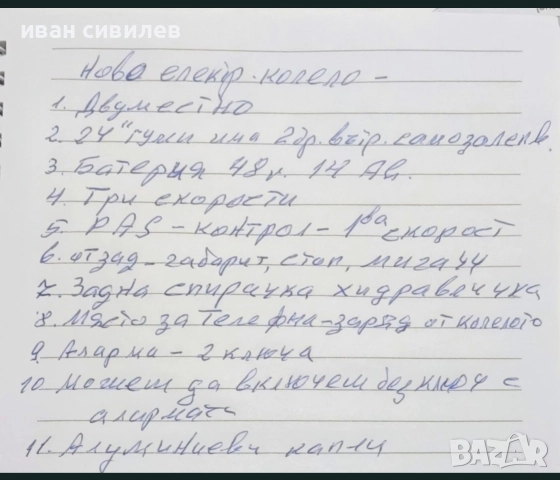 иван сивилев
Ново елекtр. колело –
1. Двуместно
2. 24" гуми има 2бр. вътр. самозалепв.
3. Батерия 48v. 14 Ah.
4. Три скорости
5. PAS – контрол – 1ва скорост
6. отзад – габарит, стоп, мигачи
7. Задна спирачка хидравлична
8. Място за телефна – заряд от колелото
9. Аларма – 2 ключа
10 можем да включем без ключ с
алармата
11. Алуминиеви капли
BAZAR